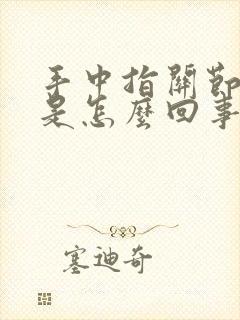 手中指關節
是怎麼回事
塞迪奇